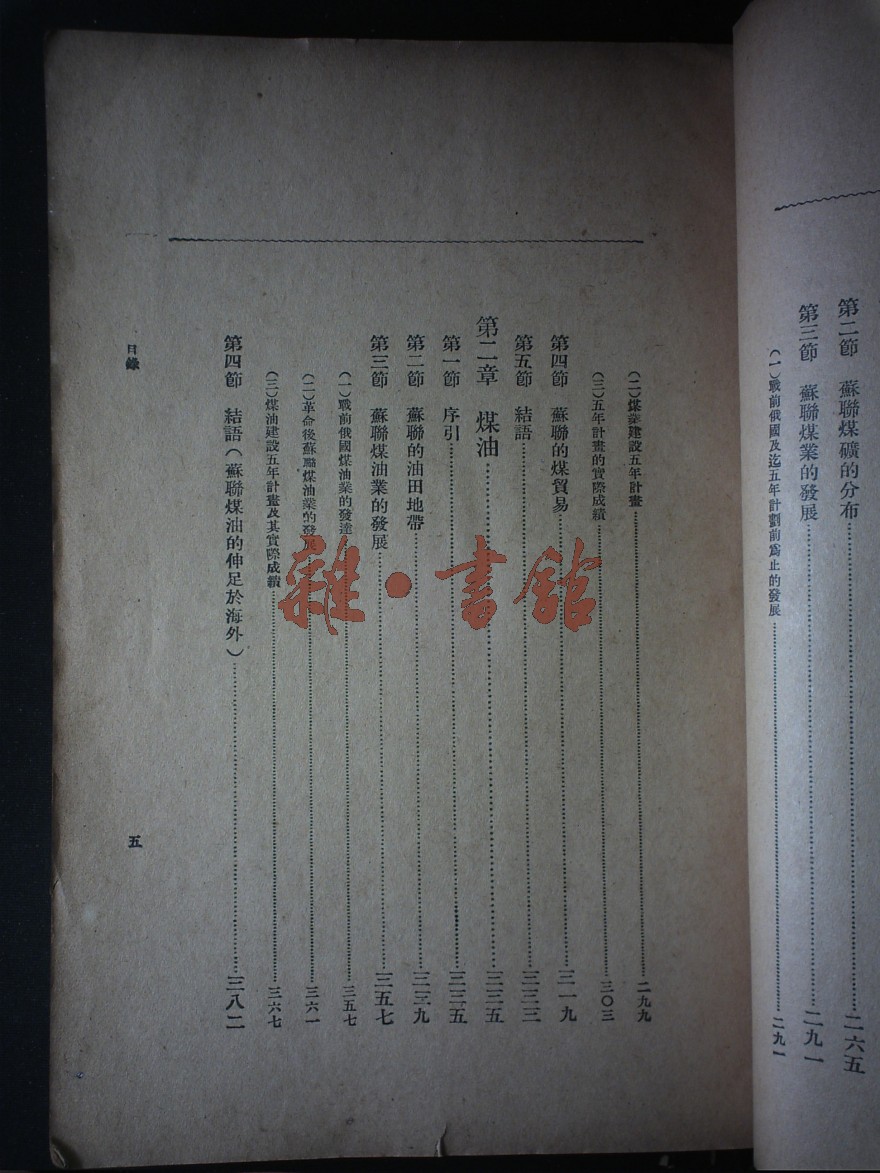 第二節　蘇聯煤礦的分布……二六五
第三節　蘇聯煤業的發展……二九一
（一）戰前俄國及迄五年計劃前爲止的發展……二九一
（二）煤業建設五年計畫……二九九
（三）五年計畫的實際成績……三〇三
第四節　蘇聯的煤貿易……三一九
第五節　結語……三三三
第二章　煤油……三三五
第一節　序引……三三五
第二節　蘇聯的油田地帶……三三九
第三節　蘇聯煤油業的發展……三五七
（一）戰前俄國煤油業的發達……三五七
（二）革命後蘇聯煤油業的發展……三六一
（三）煤油建設五年計畫及其實際成績……三六七
第四節　結語（蘇聯煤油的伸足於海外）……三八二
目錄
五
雜·書館